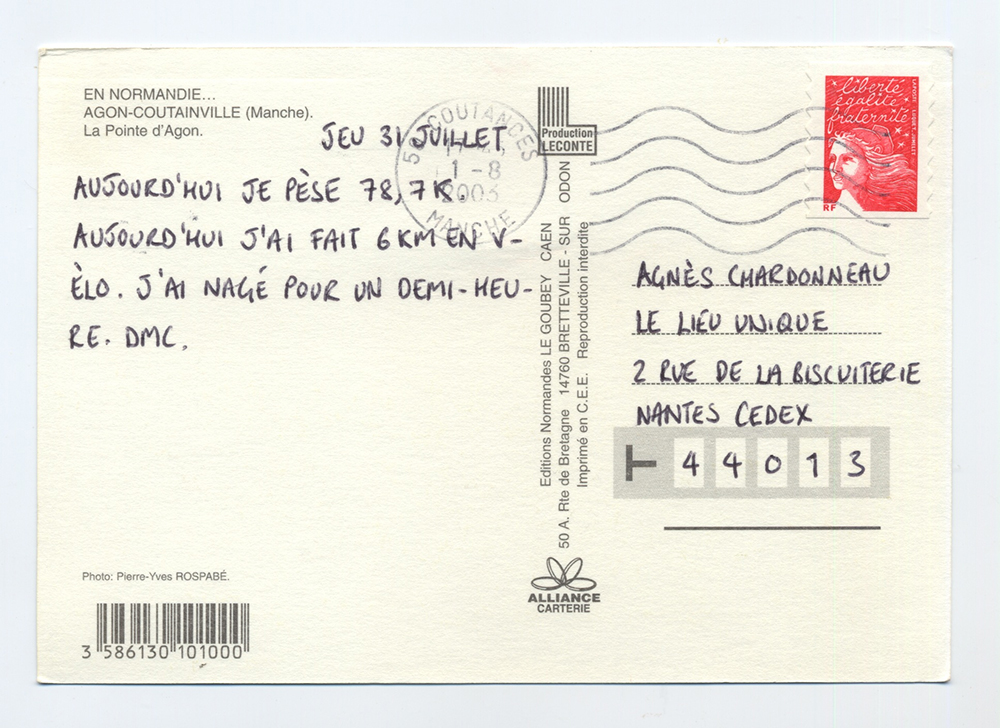 EN NORMANDIE...
AGON-COUTAINVILLE (Manche).
La Pointe d'Agon.
JEU 31 JUILLET
AUJOURD'HUI JE PÈSE 78,7K.
AUJOURD'HUI J'AI FAIT 6 KM EN V-
ÉLO. J'AI NAGÉ POUR UN DEMI-HEU-
RE. DMC.
Photo: Pierre-Yves ROSPABÉ.
3 586130 101000
COUTANCES
1-8
2003
MANCHE
Production
LECONTE
Editions Normandes LE GOUBEY CAEN
50 A. Rte de Bretagne 14760 BRETTEVILLE - SUR ODON
Imprimé en C.E.E. Reproduction interdite
ALLIANCE
CARTERIE
liberté
égalité
fraternité
LA POSTE
RF
AGNÈS CHARDONNEAU
LE LIEU UNIQUE
2 RUE DE LA BISCUITERIE
NANTES CEDEX
44013